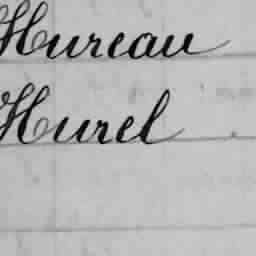 Hureau
Hurel